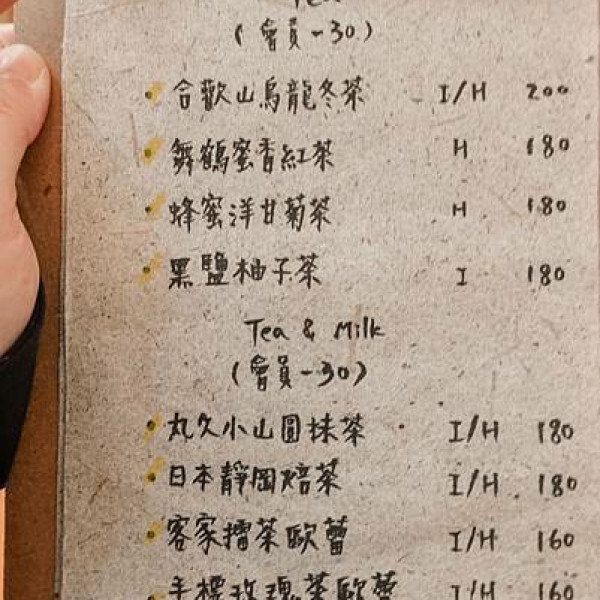 Tea
(會員-30)
合歡山烏龍冬茶 I/H 200
舞鶴蜜香紅茶 H 180
蜂蜜洋甘菊茶 H 180
黑鹽柚子茶 I 180
Tea & Milk
(會員-30)
丸久小山圓抹茶 I/H 180
日本靜岡焙茶 I/H 180
客家擂茶歐蕾 I/H 160
手標玫瑰茶歐蕾 I/H 160